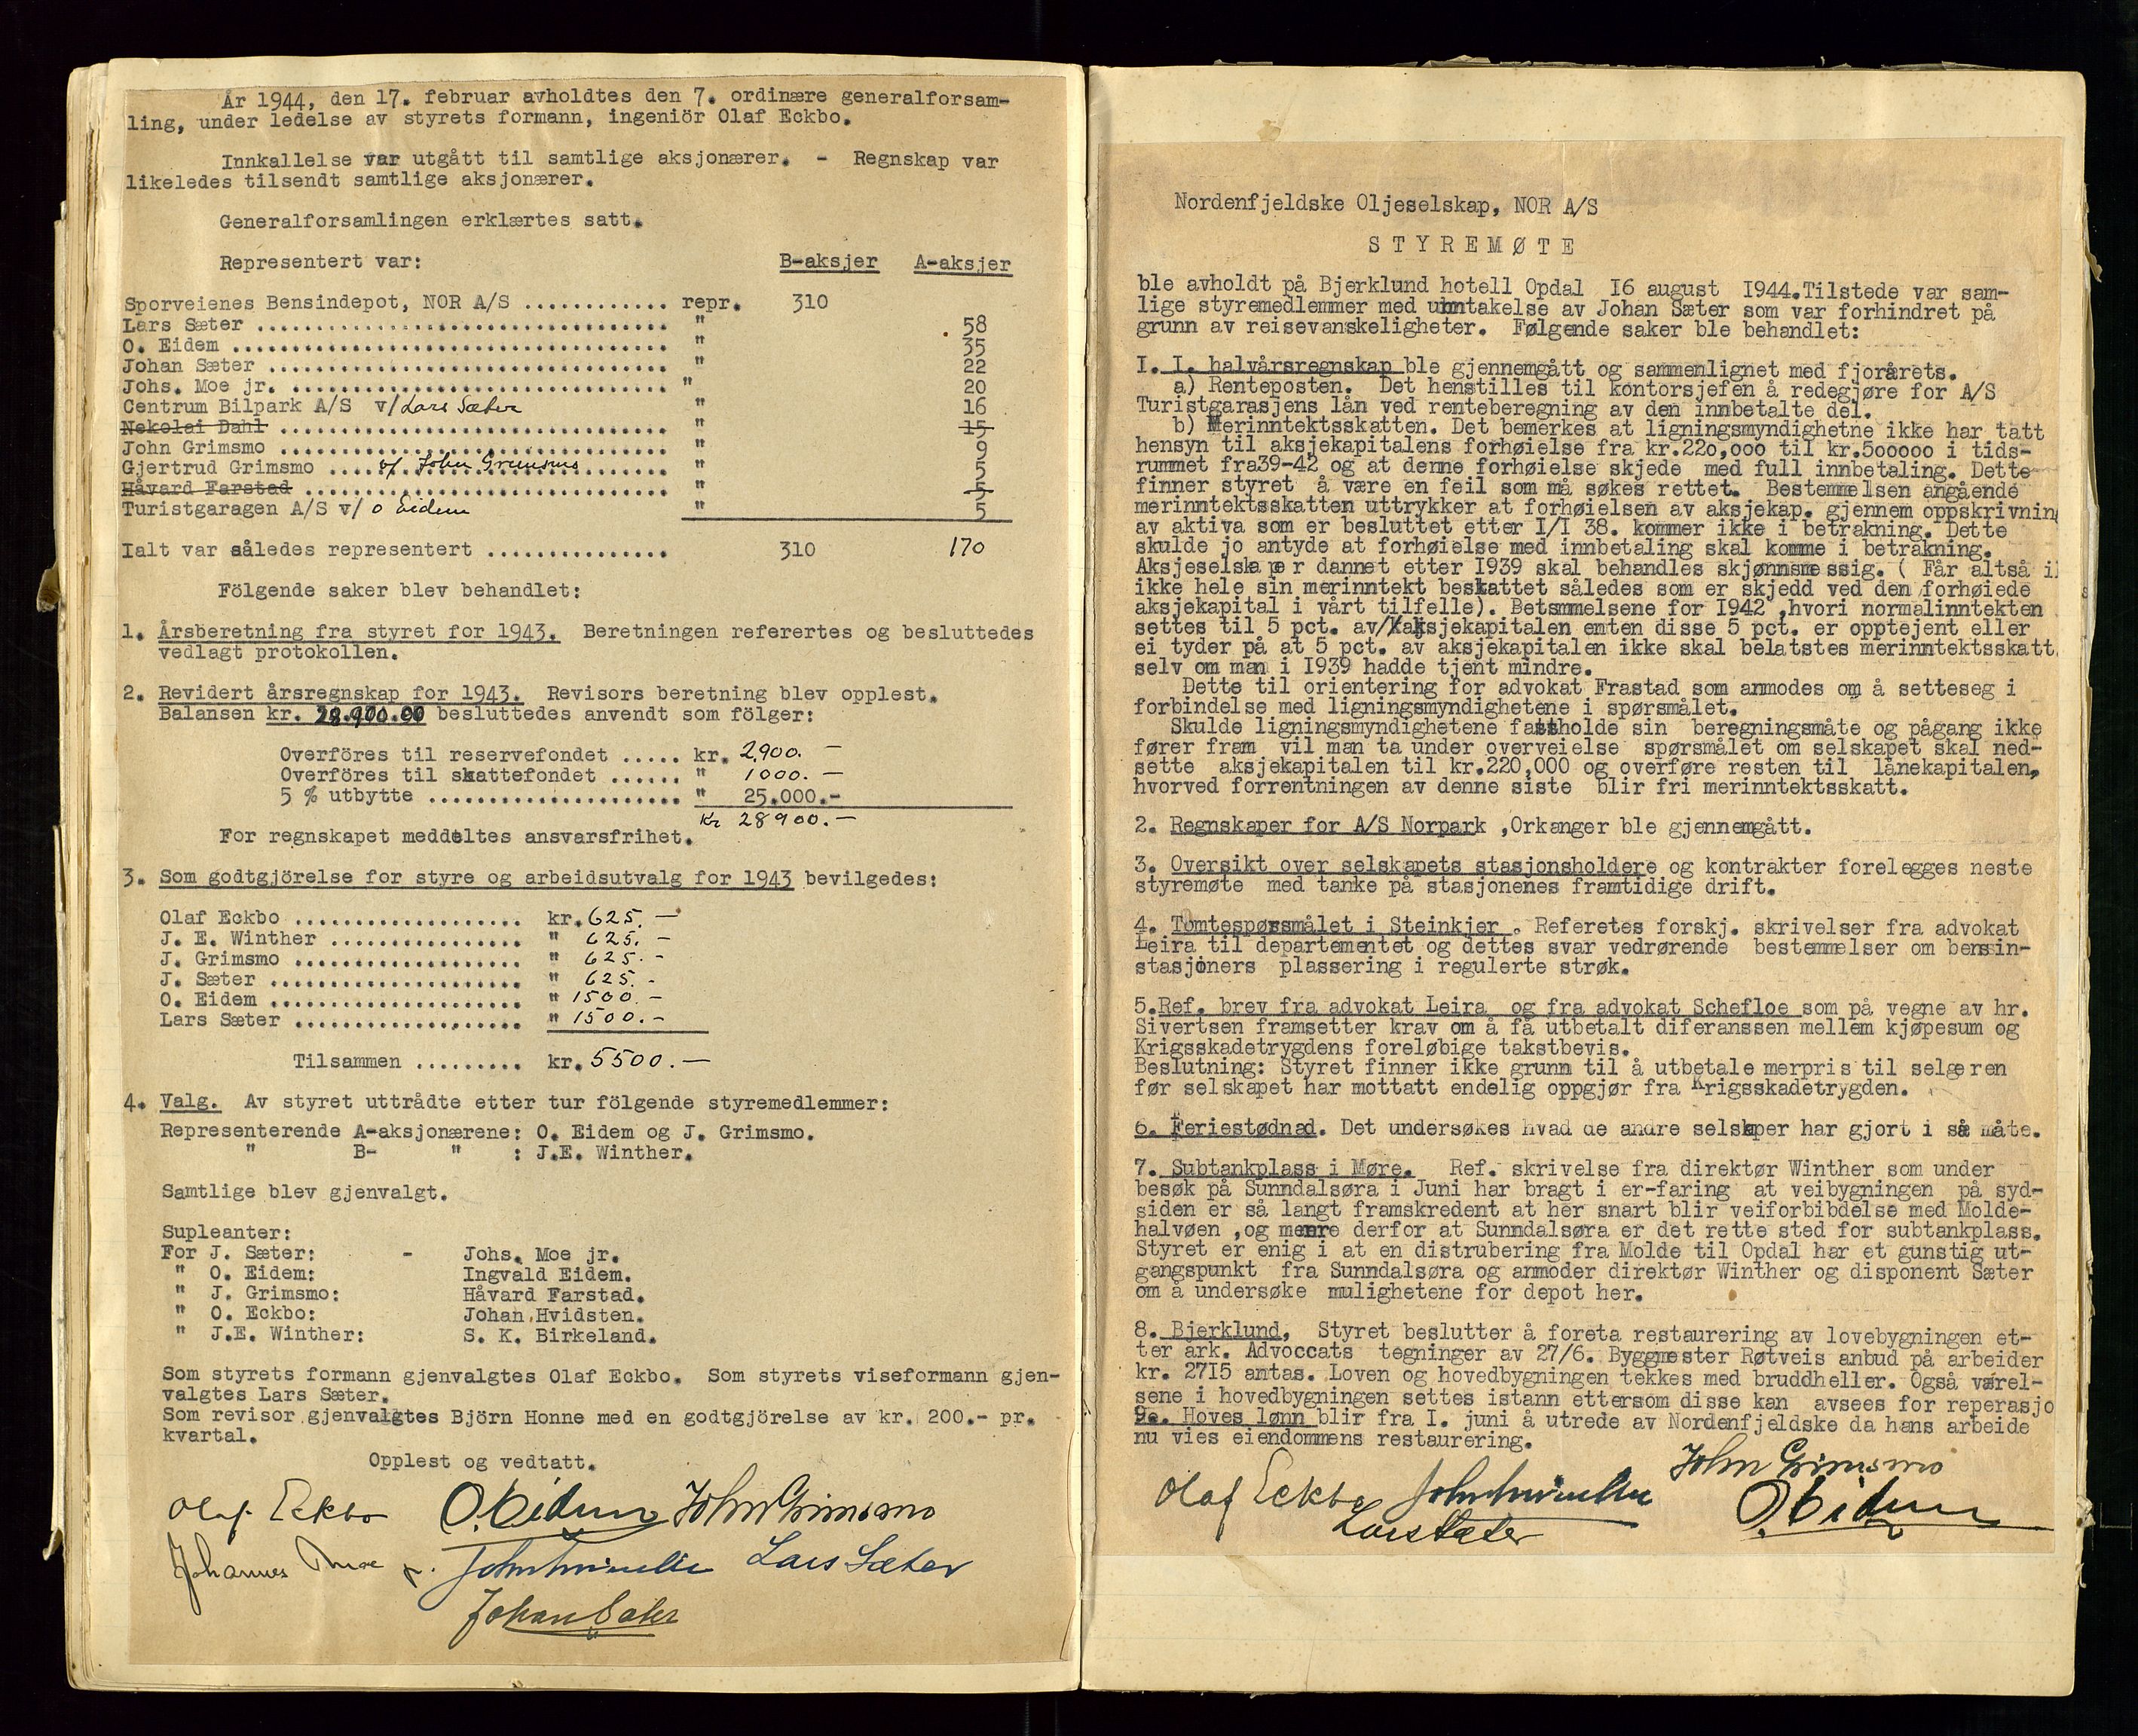 År 1944, den 17. februar avholdtes den 7. ordinære generalforsam-
ling, under ledelse av styrets formann, ingeniör Olaf Eckbo.
Innkallelse var utgått til samtlige aksjonærer. - Regnskap var
likeledes tilsendt samtlige aksjonærer.
Generalforsamlingen erklærtes satt.
Representert var: B-aksjer A-aksjer
Sporveienes Bensindepot, NOR A/S ............ repr. 310
Lars Sæter ................................... " 58
O. Eidem ..................................... " 35
Johan Sæter .................................. " 22
Johs. Moe jr. ................................ " 20
Centrum Bilpark A/S v/ Lars Sæter " 16
Nekolai Dahl ................................. " 15
John Grimsmo ................................. " 9
Gjertrud Grimsmo .... v/ John Grimsmo ........ " 5
Håvard Farstad ............................... " 5
Turistgaragen A/S v/ O Eidem " 5
Ialt var således representert ............... 310 170
Fölgende saker blev behandlet:
1. Årsberetning fra styret for 1943. Beretningen referertes og besluttedes
vedlagt protokollen.
2. Revidert årsregnskap for 1943. Revisors beretning blev opplest.
Balansen kr. 28.900.00 besluttedes anvendt som fölger:
Overföres til reservefondet ..... kr. 2,900. -
Overföres til skattefondet ...... " 1000. -
5 % utbytte ..................... " 25.000.-
Kr 28900. -
For regnskapet meddeltes ansvarsfrihet.
3. Som godtgjörelse for styre og arbeidsutvalg for 1943 bevilgedes:
Olaf Eckbo .................... kr. 625. -
J. E. Winther ................. " 625. -
J. Grimsmo .................... " 625. -
J. Sæter ...................... " 625. -
O. Eidem ...................... " 1500. -
Lars Sæter .................... " 1500. -
Tilsammen ......... kr. 5500. -
4. Valg. Av styret uttrådte etter tur fölgende styremedlemmer:
Representerende A-aksjonærene: O. Eidem og J. Grimsmo.
" B- " : J.E. Winther.
Samtlige blev gjenvalgt.
Supleanter:
For J. Sæter: - Johs. Moe jr.
" O. Eidem: Ingvald Eidem.
" J. Grimsmo: Håvard Farstad.
" O. Eckbo: Johan Hvidsten.
" J.E. Winther: S. K. Birkeland.
Som styrets formann gjenvalgtes Olaf Eckbo. Som styrets viseformann gjen-
valgtes Lars Sæter.
Som revisor gjenvalgtes Björn Honne med en godtgjörelse av kr. 200.- pr.
kvartal.
Opplest og vedtatt.
Olaf Eckbo O. Eidem John Grimsmo
Johannes Moe jr. Lars Sæter
Johan Sæter
Nordenfjeldske Oljeselskap, NOR A/S
S T Y R E M Ø T E
ble avholdt på Bjerklund hotell Opdal I6 august I944.Tilstede var sam-
lige styremedlemmer med unntakelse av Johan Sæter som var forhindret på
grunn av reisevanskeligheter. Følgende saker ble behandlet:
I. I. halvårsregnskap ble gjennemgått og sammenlignet med fjorårets.
a) Renteposten. Det henstilles til kontorsjefen å redegjøre for A/S
Turistgarasjens lån ved renteberegning av den innbetalte del.
b) Merinntektsskatten. Det bemerkes at ligningsmyndighetne ikke har tatt
hensyn til aksjekapitalens forhøielse fra kr.220,000 til kr.500000 i tids-
rummet fra39-42 og at denne forhøielse skjede med full innbetaling. Dette
finner styret å være en feil som må søkes rettet. Bestemmelsen angående
merinntektsskatten uttrykker at forhøielsen av aksjekap. gjennem oppskrivnin
av aktiva som er besluttet etter I/I 38. kommer ikke i betrakning. Dette
skulde jo antyde at forhøielse med innbetaling skal komme i betrakning.
Aksjeselskaper dannet etter I939 skal behandles skjønnsmessig. ( Får altså i
ikke hele sin merinntekt beskattet således som er skjedd ved den forhøiede
aksjekapital i vårt tilfelle). Betsmmelsene for I942 ,hvori normalinntekten
settes til 5 pct. av aksjekapitalen enten disse 5 pct. er opptejent eller
ei tyder på at 5 pct. av aksjekapitalen ikke skal belatstes merinntektsskatt
selv om man i I939 hadde tjent mindre.
Dette til orientering for advokat Frastad som anmodes om å setteseg i
forbindelse med ligningsmyndighetene i spørsmålet.
Skulde ligningsmyndighetene fastholde sin beregningsmåte og pågang ikke
fører fram vil man ta under overveielse spørsmålet om selskapet skal ned-
sette aksjekapitalen til kr.220,000 og overføre resten til lånekapitalen,
hvorved forrentningen av denne siste blir fri merinntektsskatt.
2. Regnskaper for A/S Norpark ,Orkanger ble gjennemgått.
3. Oversikt over selskapets stasjonsholdere og kontrakter forelegges neste
styremøte med tanke på stasjonenes framtidige drift.
4. Tomtespørsmålet i Steinkjer . Referetes forskj. skrivelser fra advokat
Leira til departementet og dettes svar vedrørende bestemmelser om bensin-
stasjoners plassering i regulerte strøk.
5.Ref. brev fra advokat Leira og fra advokat Schefloe som på vegne av hr.
Sivertsen framsetter krav om å få utbetalt diferanssen mellem kjøpesum og
Krigsskadetrygdens foreløbige takstbevis.
Beslutning: Styret finner ikke grunn til å utbetale merpris til selgeren
før selskapet har mottatt endelig oppgjør fra Krigsskadetrygden.
6. Feriestødnad. Det undersøkes hvad de andre selskaper har gjort i så måte.
7. Subtankplass i Møre. Ref. skrivelse fra direktør Winther som under
besøk på Sunndalsøra i Juni har bragt i er-faring at veibygningen på syd-
siden er så langt framskredent at her snart blir veiforbibdelse med Molde-
halvøen ,og menre derfor at Sunndalsøra er det rette sted for subtankplass.
Styret er enig i at en distrubering fra Molde til Opdal har et gunstig ut-
gangspunkt fra Sunndalsøra og anmoder direktør Winther og disponent Sæter
om å undersøke mulighetene for depot her.
8. Bjerklund, Styret beslutter å foreta restaurering av lovebygningen et-
ter ark. Advoccats tegninger av 27/6. Byggmester Røtveis anbud på arbeider
kr. 27I5 antas. Loven og hovedbygningen tekkes med bruddheller. Også værel-
sene i hovedbygningen settes istann ettersom disse kan avsees for reperasjo
9. Hoves lønn blir fra I. juni å utrede av Nordenfjeldske da hans arbeide
nu vies eiendommens restaurering.
John Grimsmo
Olaf Eckbo O. Eidem
Lars Sæter